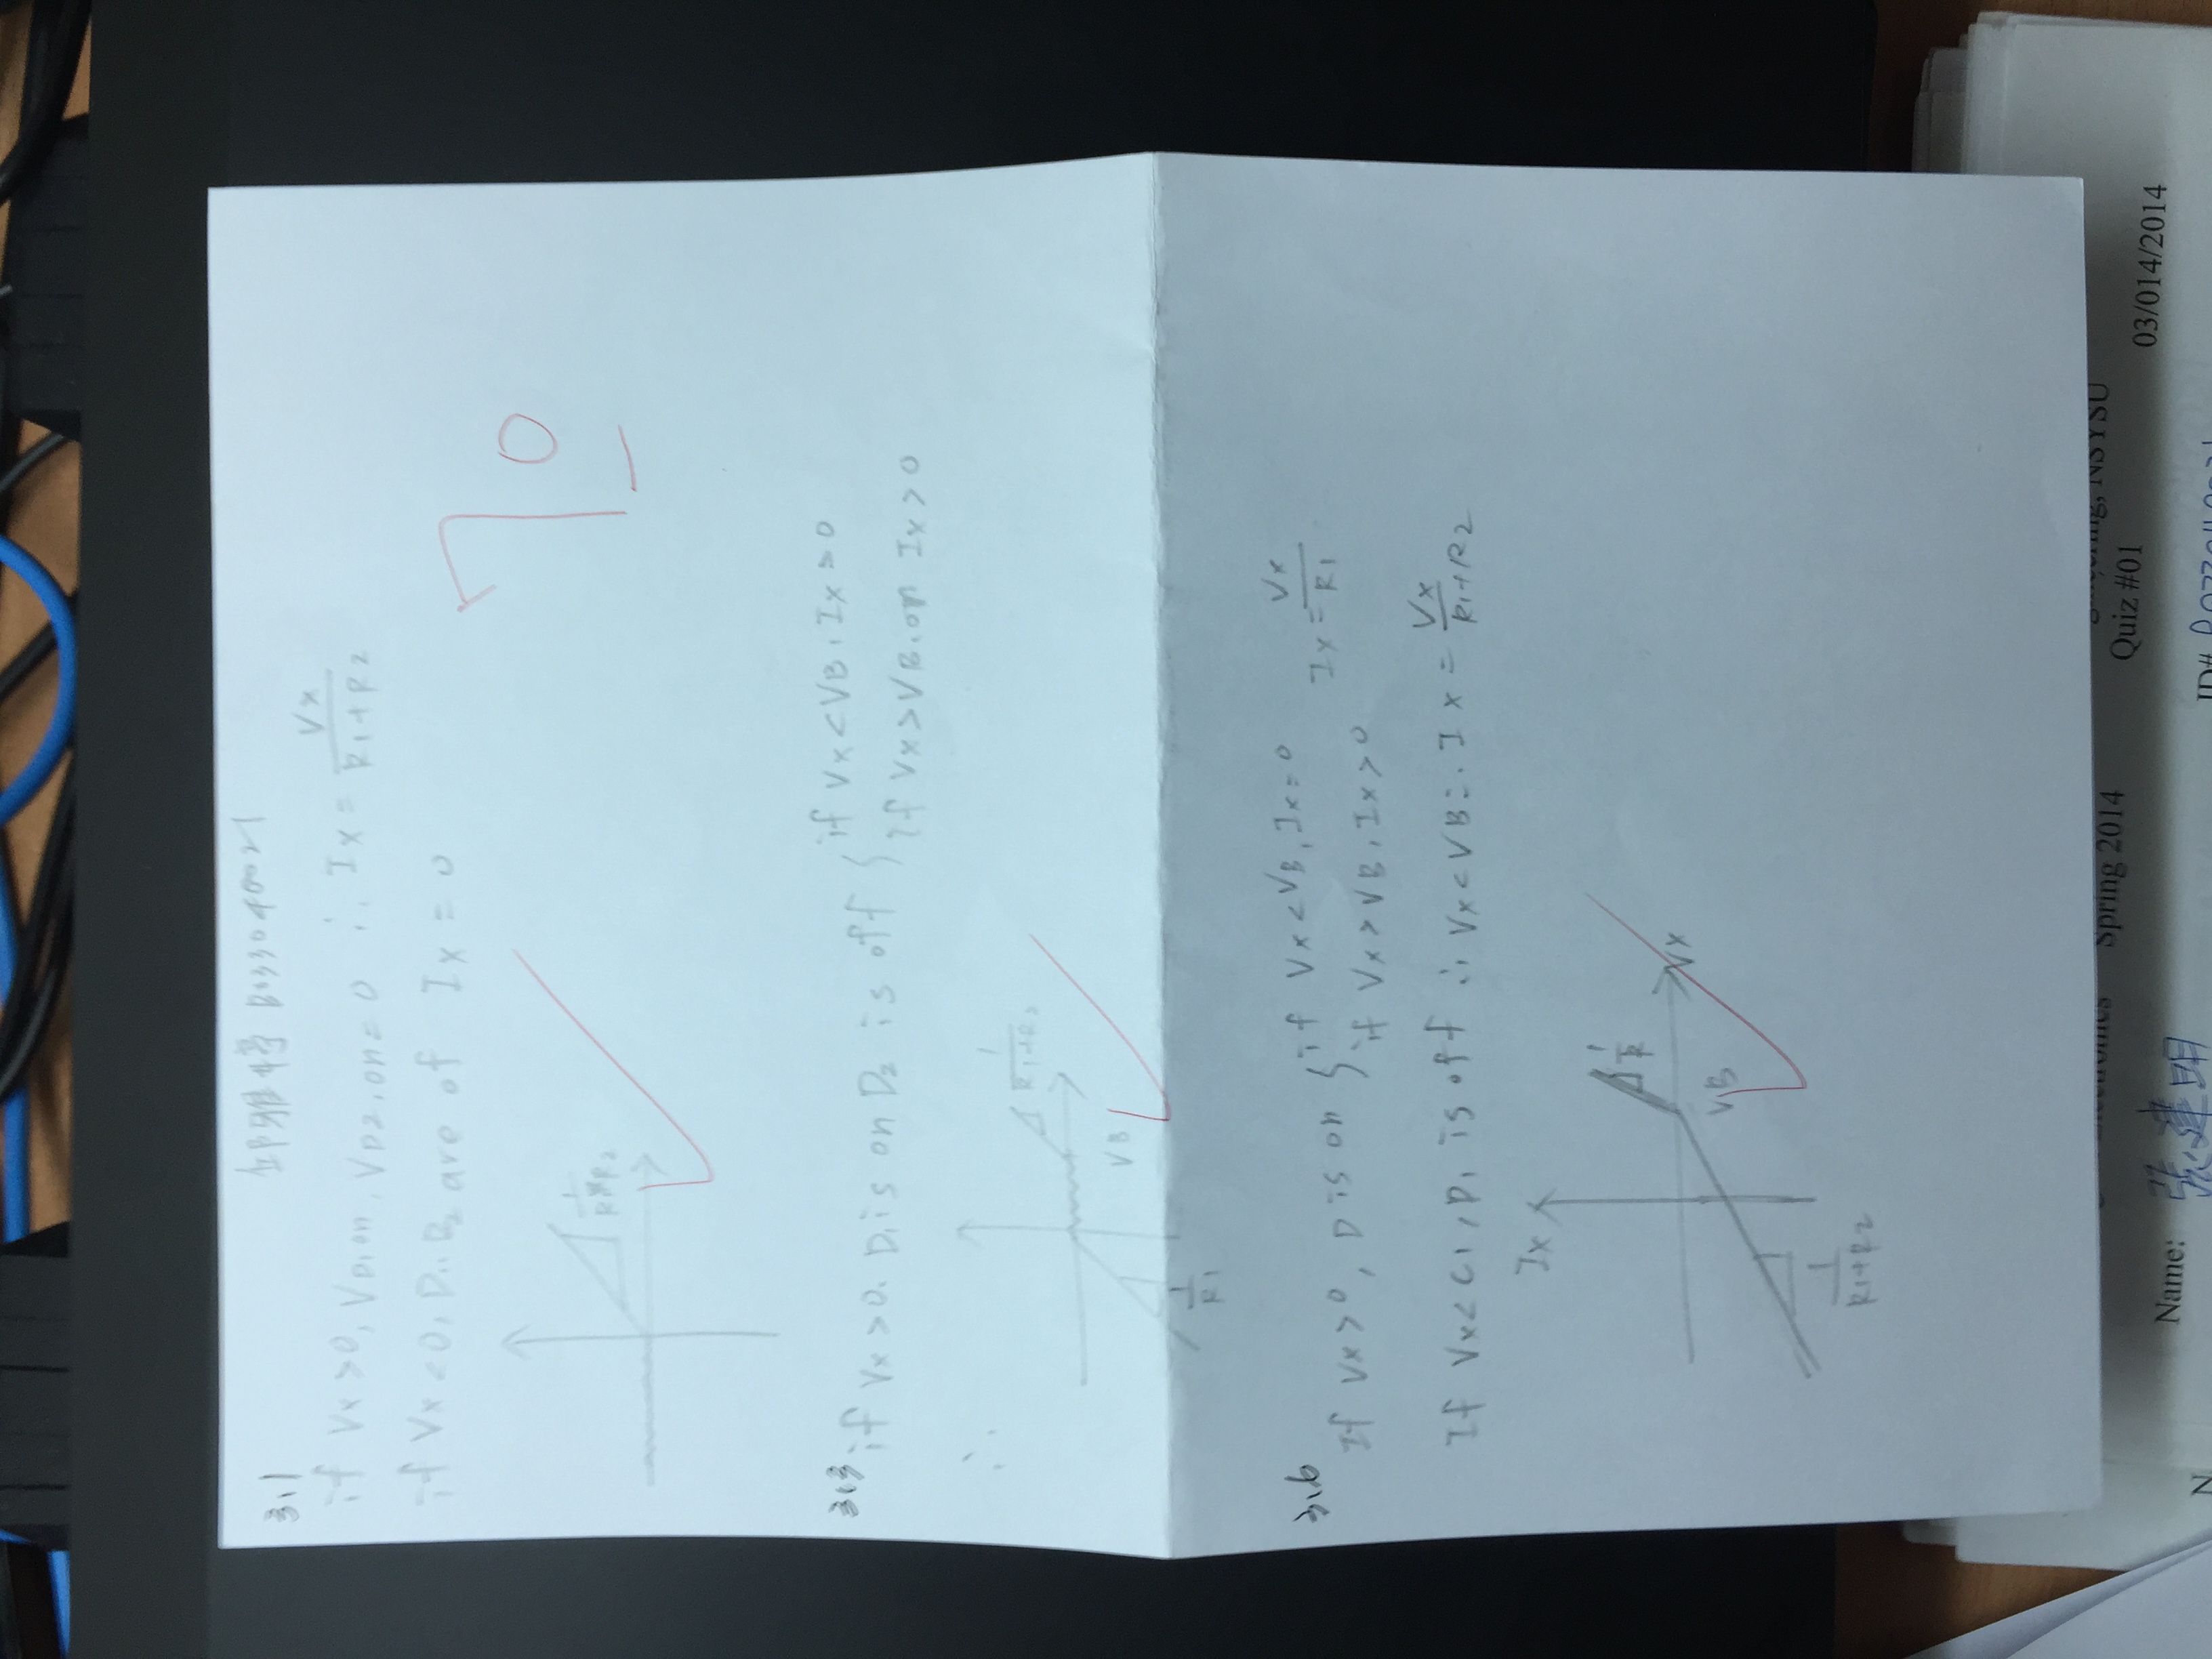 邱雅婷 B033040021
3.1
if Vx >0, VD1,on, VD2,on=0 ∴ Ix = Vx/(R1+R2)
if Vx <0, D1, D2 are of Ix = 0
70
1/(R1+R2)
3.3
if Vx >0. D1 is on D2 is off { if Vx < VB, Ix = 0
if Vx > VB, on Ix > 0
∴
1/(R1+R2)
VB
1/R1
3.6
If Vx >0, D is on { if Vx < VB, Ix = 0 Ix = Vx/R1
if Vx > VB, Ix > 0
If Vx < , D1 is off ∴ Vx < VB ∴ Ix = Vx/(R1+R2)
Ix
1/R
Vx
VB
1/(R1+R2)
Spring 2014 NSYSU
Quiz #01
03/014/2014
Name: 張建明
ID#